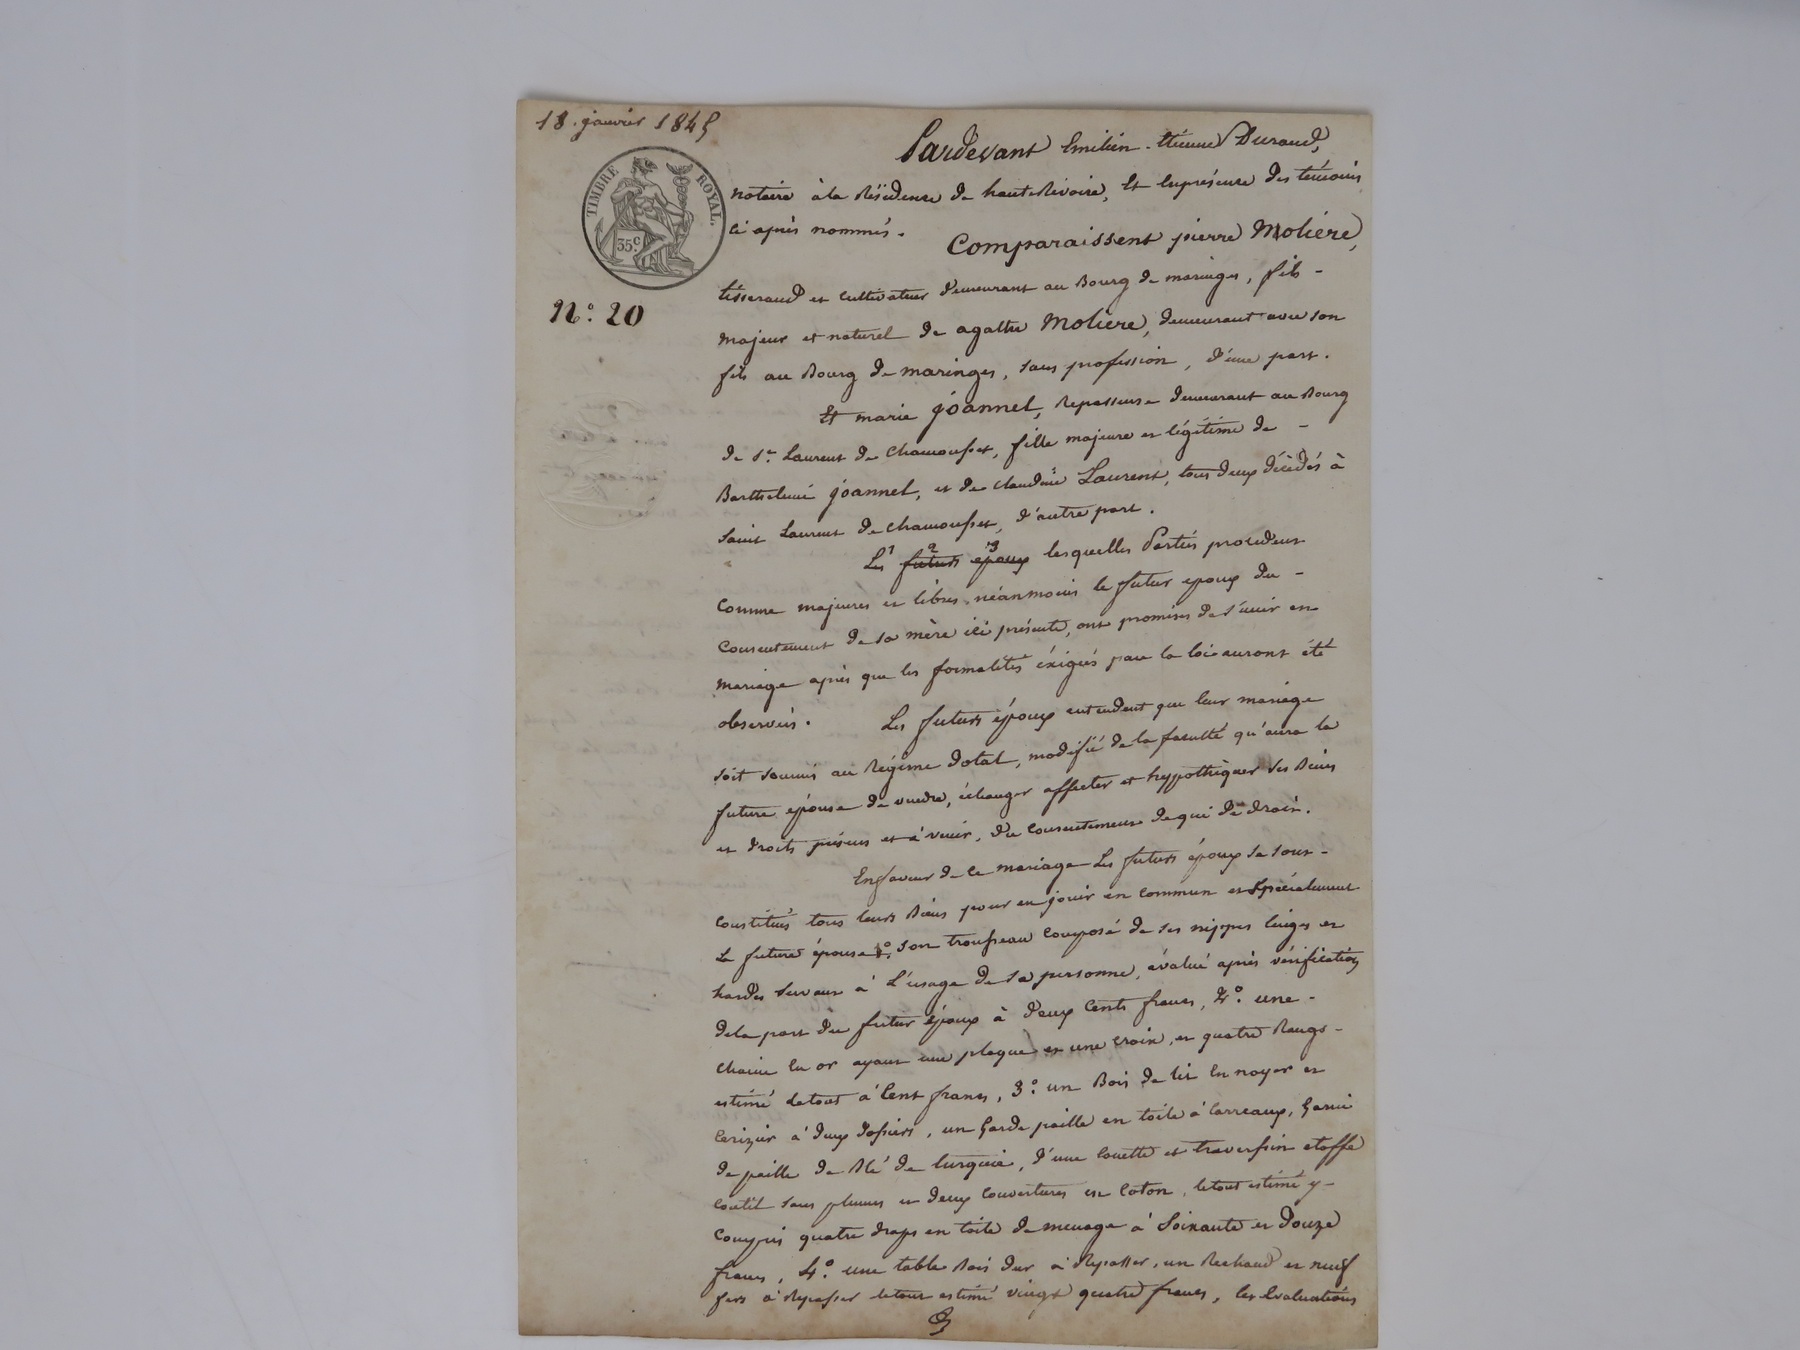 18. janvier 1845
TIMBRE ROYAL
35c
N.° 20
Pardevant Emilien-Etienne Durand,
notaire à la Résidence de hauteRivoire, Et Enprésence des témoins
ci après nommés.
Comparaissent pierre Molière,
tisserand et cultivateur demeurant au Bourg de maringes, fils -
majeur et naturel de agathe Molière, demeurant avec son
fils au Bourg de maringes, sans profession, d'une part.
Et marie joannel, Repasseuse demeurant au Bourg
de St. Laurent de Chamousset, fille majeure et légitime de -
Barthelemi joannel, et de claudine Laurent, tous deux décédés à
saint Laurent de Chamousset, d'autre part.
Les futurs époux lesquelles Parties procédent
1 2 3
comme majeures et libres, néanmoins le futur époux du -
consentement de sa mère ici présente, ont promises de s'unir en
mariage après que les formalités éxigées par la loi auront été
observées. Les futurs époux entendent que leur mariage
soit soumis au Régime dotal, modifié de la faculté qu'aura la
future épouse de vendre, échanger affecter et hyppothèquer ses Biens
et droits présens et à venir, du consentement de qui de droit.
Enfaveur de ce mariage Les futurs époux se sont -
constitués tous leurs Biens pour en jouir en commun et spécialement
La future épouse 1° son trousseau composé de ses nippes linges et
hardes servant à L'usage de sa personne, évalué après vérification
dela part du futur époux à deux cents francs, 2°. une -
chaine en or ayant une plaque et une croix, et quatre Rangs -
estimé letout à Cent francs, 3°. un Bois de lit en noyer et
Cerizier à deux dossiers, un Garde paille en toile à Carreaux, Garni
de paille de Blé de turquie, d'une couette et traversin etoffe
coutil sans plumes et deux couvertures en Coton, letout estimé y -
compris quatre draps en toile de menage à Soixante et Douze
francs, 4°. une table Bois dur à Repasser, un Rechaud et neuf
fers à Repasser letout estimé vingt quatre francs, les Evaluations